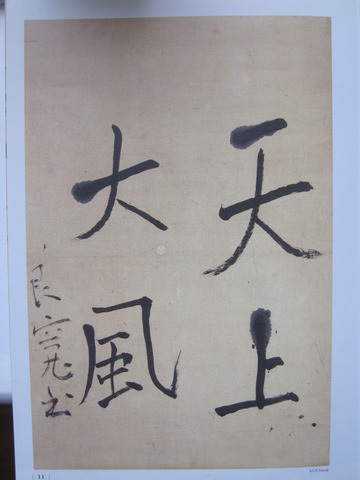 天上
大風
良寛書
11